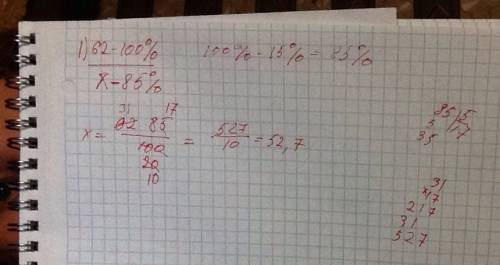 1) 62 - 100%   100% - 15% = 85%
x - 85%
31   17
x = 62 · 85 / 100 = 527 / 10 = 52,7
20
10
85 | 5
5 | 17
35
31
x17
217
31
527